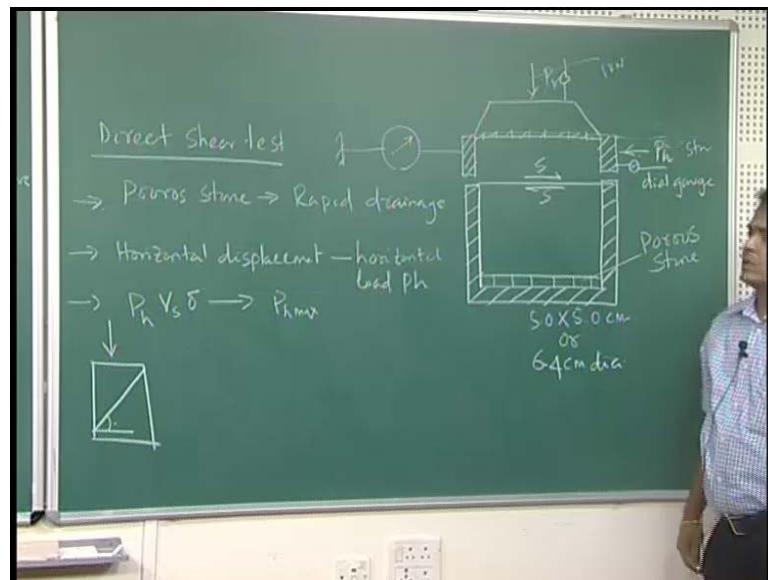 Direct Shear test
→ Pouros stone → Rapid drainage
→ Horizontal displacement — horizontal load Ph
→ Ph Vs δ → Phmax
Pv
Ph
dial gauge
S
S
Porous
Stone
5.0 X 5.0 cm
or
6.4 cm dia.